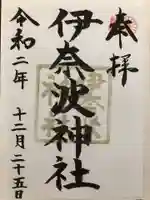 奉拝
伊奈波神社
令和二年 十二月二十五日